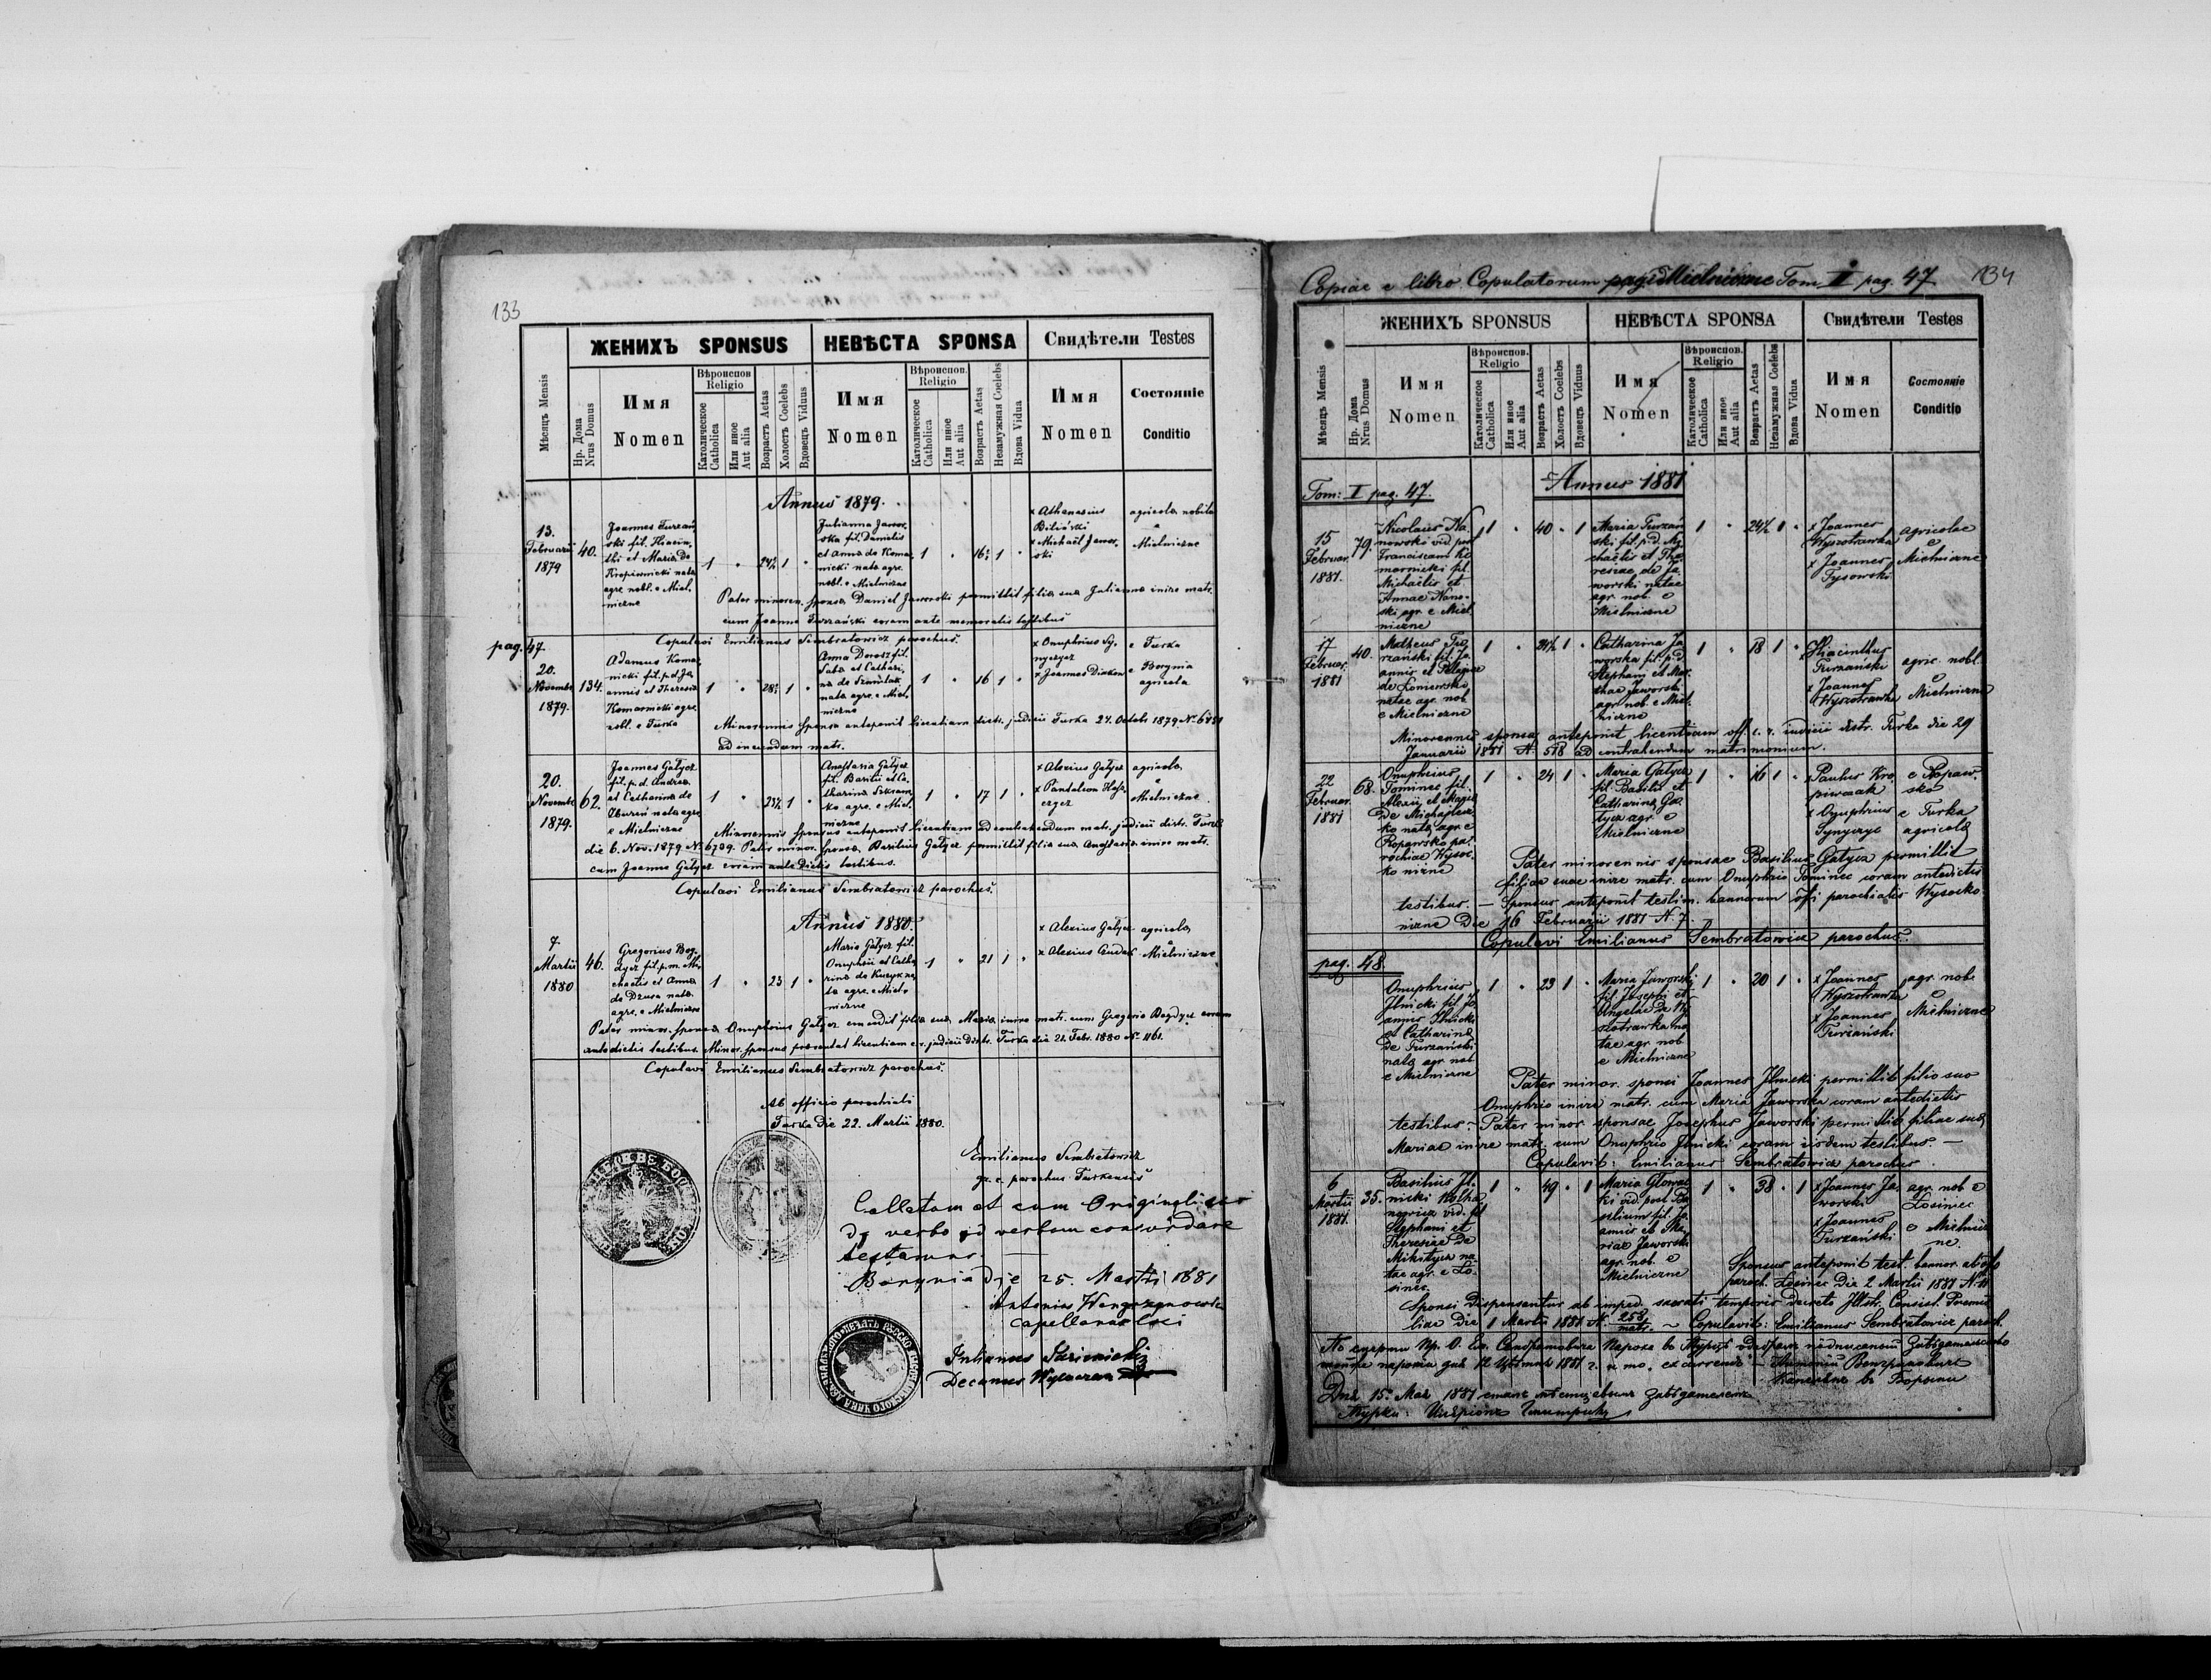 133
ЖЕНИХЪ SPONSUS
НЕВѢСТА SPONSA
Свидѣтели Testes
Мѣсяцъ Mensis
Нр. Дома
Nrus Domus
Имя
Nomen
Вѣроиспов.
Religio
Католическое
Catholica
Или иное
Aut alia
Возрастъ Aetas
Холостъ Coelebs
Вдовецъ Viduus
Имя
Nomen
Вѣроиспов.
Religio
Католическое
Catholica
Или иное
Aut alia
Возрастъ Aetas
Незамужная Coelebs
Вдова Vidua
Имя
Nomen
Состояніе
Conditio
Annus 1879.
13.
Februarii
1879
40.
Joannes Turzań
ski fil. Hiacin
thi et Maria de
Kropiwnicki nata
agr. nobl. e Miel
niczne
1 " 24½ 1 "
Julianna Jawor
ska fil. Danielis
et Anna de Komar
nicki nata agr.
nobl. e Mielniczne
1 " 16½ 1 "
x Athanasius
Biliński
x Michaël Jawor
ski
agricola nobila
e
Mielniczne
Pater minoren. sponsa Daniel Jaworski permittit filia sua Julianna inire matr.
cum Joanne Turzański coram ante memoratis testibus
Copulavi Emilianus Sembratowicz parochus.
pag. 47
20.
Novembr.
1879.
134.
Adamus Komar
nicki fil. p.d. Jo
annis et Theresia
Komarnicki agr.
nobl. e Turka
1 " 28½ 1 "
Anna Dorosz fil.
et Cathari
na de
nata agr. e Miel
niczne
1 " 16 1 "
x Onuphrius Sy
nyczycz
x Joannes
e Turka
e Borynia
agricola
Minorennis sponsa anteponit licentiam distr. judicii Turka 24. Octobr 1879 N.
ad ineundum matr.
20.
Novembr.
1879.
62.
Joannes Gałycz
fil. p.d. Andrea
et Catharina de
nata agr.
e Mielniczne
1 " 23½ 1 "
Anastasia Gałycz
fil. Basilii et Ca
tharina
agr. e Miel
niczne
1 " 17 1 "
x Alexius Gałycz
x Pantaleon
agricola
e
Mielniczne
Minorennis sponsus anteponit licentiam ad contrahendum matr. judicii distr. Turka
die 6. Nov. 1879 N. 6739. Pater minor. sponsa Basilius Gałycz permittit filia sua Anastasia inire matr.
cum Joanne Gałycz coram ante dictis testibus.
Copulavi Emilianus Sembratowicz parochus.
Annus 1880.
7.
Martii
1880
46.
Gregorius Bog
dycz fil. p.m. Mi
chaelis et Anna
de nata
agr. e Mielniczne
1 " 23 1 "
Maria Gałycz fil.
Onuphrii et Catha
rina de na
ta agr. e Miel
niczne
1 " 21 1 "
x Alexius Gałycz
x Alexius
agricola
e
Mielniczne
Pater minor. sponsa Onuphrius Gałycz filia sua Maria inire matr. cum Gregorio Bogdycz coram
antedictis testibus. Minor. sponsus presentat licentiam c.r. judicii Distr. Turka die 21 Febr. 1880 N. 1161.
Copulavi Emilianus Sembratowicz parochus.
Ab officio parochiali
Turka die 22. Martii 1880.
Emilianus Sembratowicz
gr. c. parochus Turkensis
Collatam et cum Originali suo
de verbo ad verbum concordare
testamur.
Borynia Die 25. Martii 1881
Antonius
Capellanus loci
Julianus
Decanus
Copiae e libro Copulatorum pagi Mielniczne Tom II pag. 47
134
ЖЕНИХЪ SPONSUS
НЕВѢСТА SPONSA
Свидѣтели Testes
Мѣсяцъ Mensis
Нр. Дома
Nrus Domus
Имя
Nomen
Вѣроиспов.
Religio
Католическое
Catholica
Или иное
Aut alia
Возрастъ Aetas
Холостъ Coelebs
Вдовецъ Viduus
Имя
Nomen
Вѣроиспов.
Religio
Католическое
Catholica
Или иное
Aut alia
Возрастъ Aetas
Незамужная Coelebs
Вдова Vidua
Имя
Nomen
Состояніе
Conditio
Tom: I pag. 47.
Annus 1881
15
Februar.
1881.
79.
Nicolaus Na
nowski vid. post
Franciscam Ko
marnicki fil.
Michaëlis et
Annae Nanow
ski agr. e Miel
niczne
1 " 40 " 1
Maria Turzań
ski fil. p.d. Mi
chaëlis et The
resiae de Ja
worski natae
agr. nob. e
Mielniczne
1 " 24½ 1 "
x Joannes
Wysotrawka
x Joannes
Tysowski
agricolae
e
Mielniczne
17
Februar.
1881
40.
Matheus Tu
rzański fil. Jo
annis et Pelagiae
de Łoniewski
natae agr. nob
e Mielniczne
1 " 24½ 1 "
Catharina Ja
worska fil. p.d.
Stephani et Mar
thae Jaworski
agr. nob. e Miel
niczne
1 " 18 1 "
x Hiacinthus
Turzański
x Joannes
Wysotrawka
agric. nobl.
e
Mielniczne
Minorennis sponsa anteponit licentiam off. c. r. iudicii distr. Turka die 29
Januarii 1881 N. 518 ad contrahendum matrimonium.
22
Februar.
1881
68.
Onuphrius
Tominec fil.
Alexii et Maria
De Michajlecz
ko nata agr. e
Ropawsko pa
rochiae Wysoc
ko niżne
1 " 24 1 "
Maria Gałycz
fil. Basilii et
Catharina Ga
łycz agr. e
Mielniczne
1 " 16 1 "
x Paulus Kro
piwczak
x Onuphrius
Synyczyc
e Ropaw
sko
e Turka
agricolae
Pater minorennis sponsae Basilius Gałycz permittit
filiae suae inire matr. cum Onuphrio Tominec coram antedictis
testibus. — Sponsus anteponit testim. bannorum offi parochialis Wysocko
niżne Die 16 Februarii 1881 N. 7.
Copulavi Emilianus Sembratowicz parochus.
pag. 48.
Onuphrius
Ilnicki fil. Jo
annis Ilnicki
et Catharina
De Turzański
nata agr. nob
e Mielniczne
1 " 23 1 "
Maria Jaworski
fil. Josephi et
Angelae De Wy
sotrawka na
tae agr. nob
e Mielniczne
1 " 20 1 "
x Joannes
Wysotrawka
x Joannes
Turzański
agr. nob.
e
Mielniczne
Pater minor. sponsi Joannes Ilnicki permittit filio suo
Onuphrio inire matr. cum Maria Jaworska coram antedictis
testibus. — Pater minor. sponsae Josephus Jaworski permittit filiae suae
Mariae inire matr. cum Onuphrio Ilnicki coram iisdem testibus —
Copulavit: Emilianus Sembratowicz parochus.
6
Martii
1881.
35.
Basilius Il
nicki
vid. fil
Stephani et
Theresiae De
Mikitycz na
tae agr. e Ło
siniec
1 " 49 " 1
Maria
vid. post Ba
silium fil. Jo
annis et Ma
riae Jaworski
agr. nob. e
Mielniczne
1 " 38 " 1
x Joannes Ja
worski
x Joannes
Turzański
agr. nob e
Łosiniec
e Mielnicz
ne.
Sponsus anteponit test. bannor. ab off
paroch. Łosiniec Die 2 Martii 1881 N.
Sponsi Dispensantur ab imped. sacrati temporis decreto Illstr. Consist. Premis
liae Die 1 Martii 1881 N. 258/matr. — Copulavit: Emilianus Sembratowicz paroch.